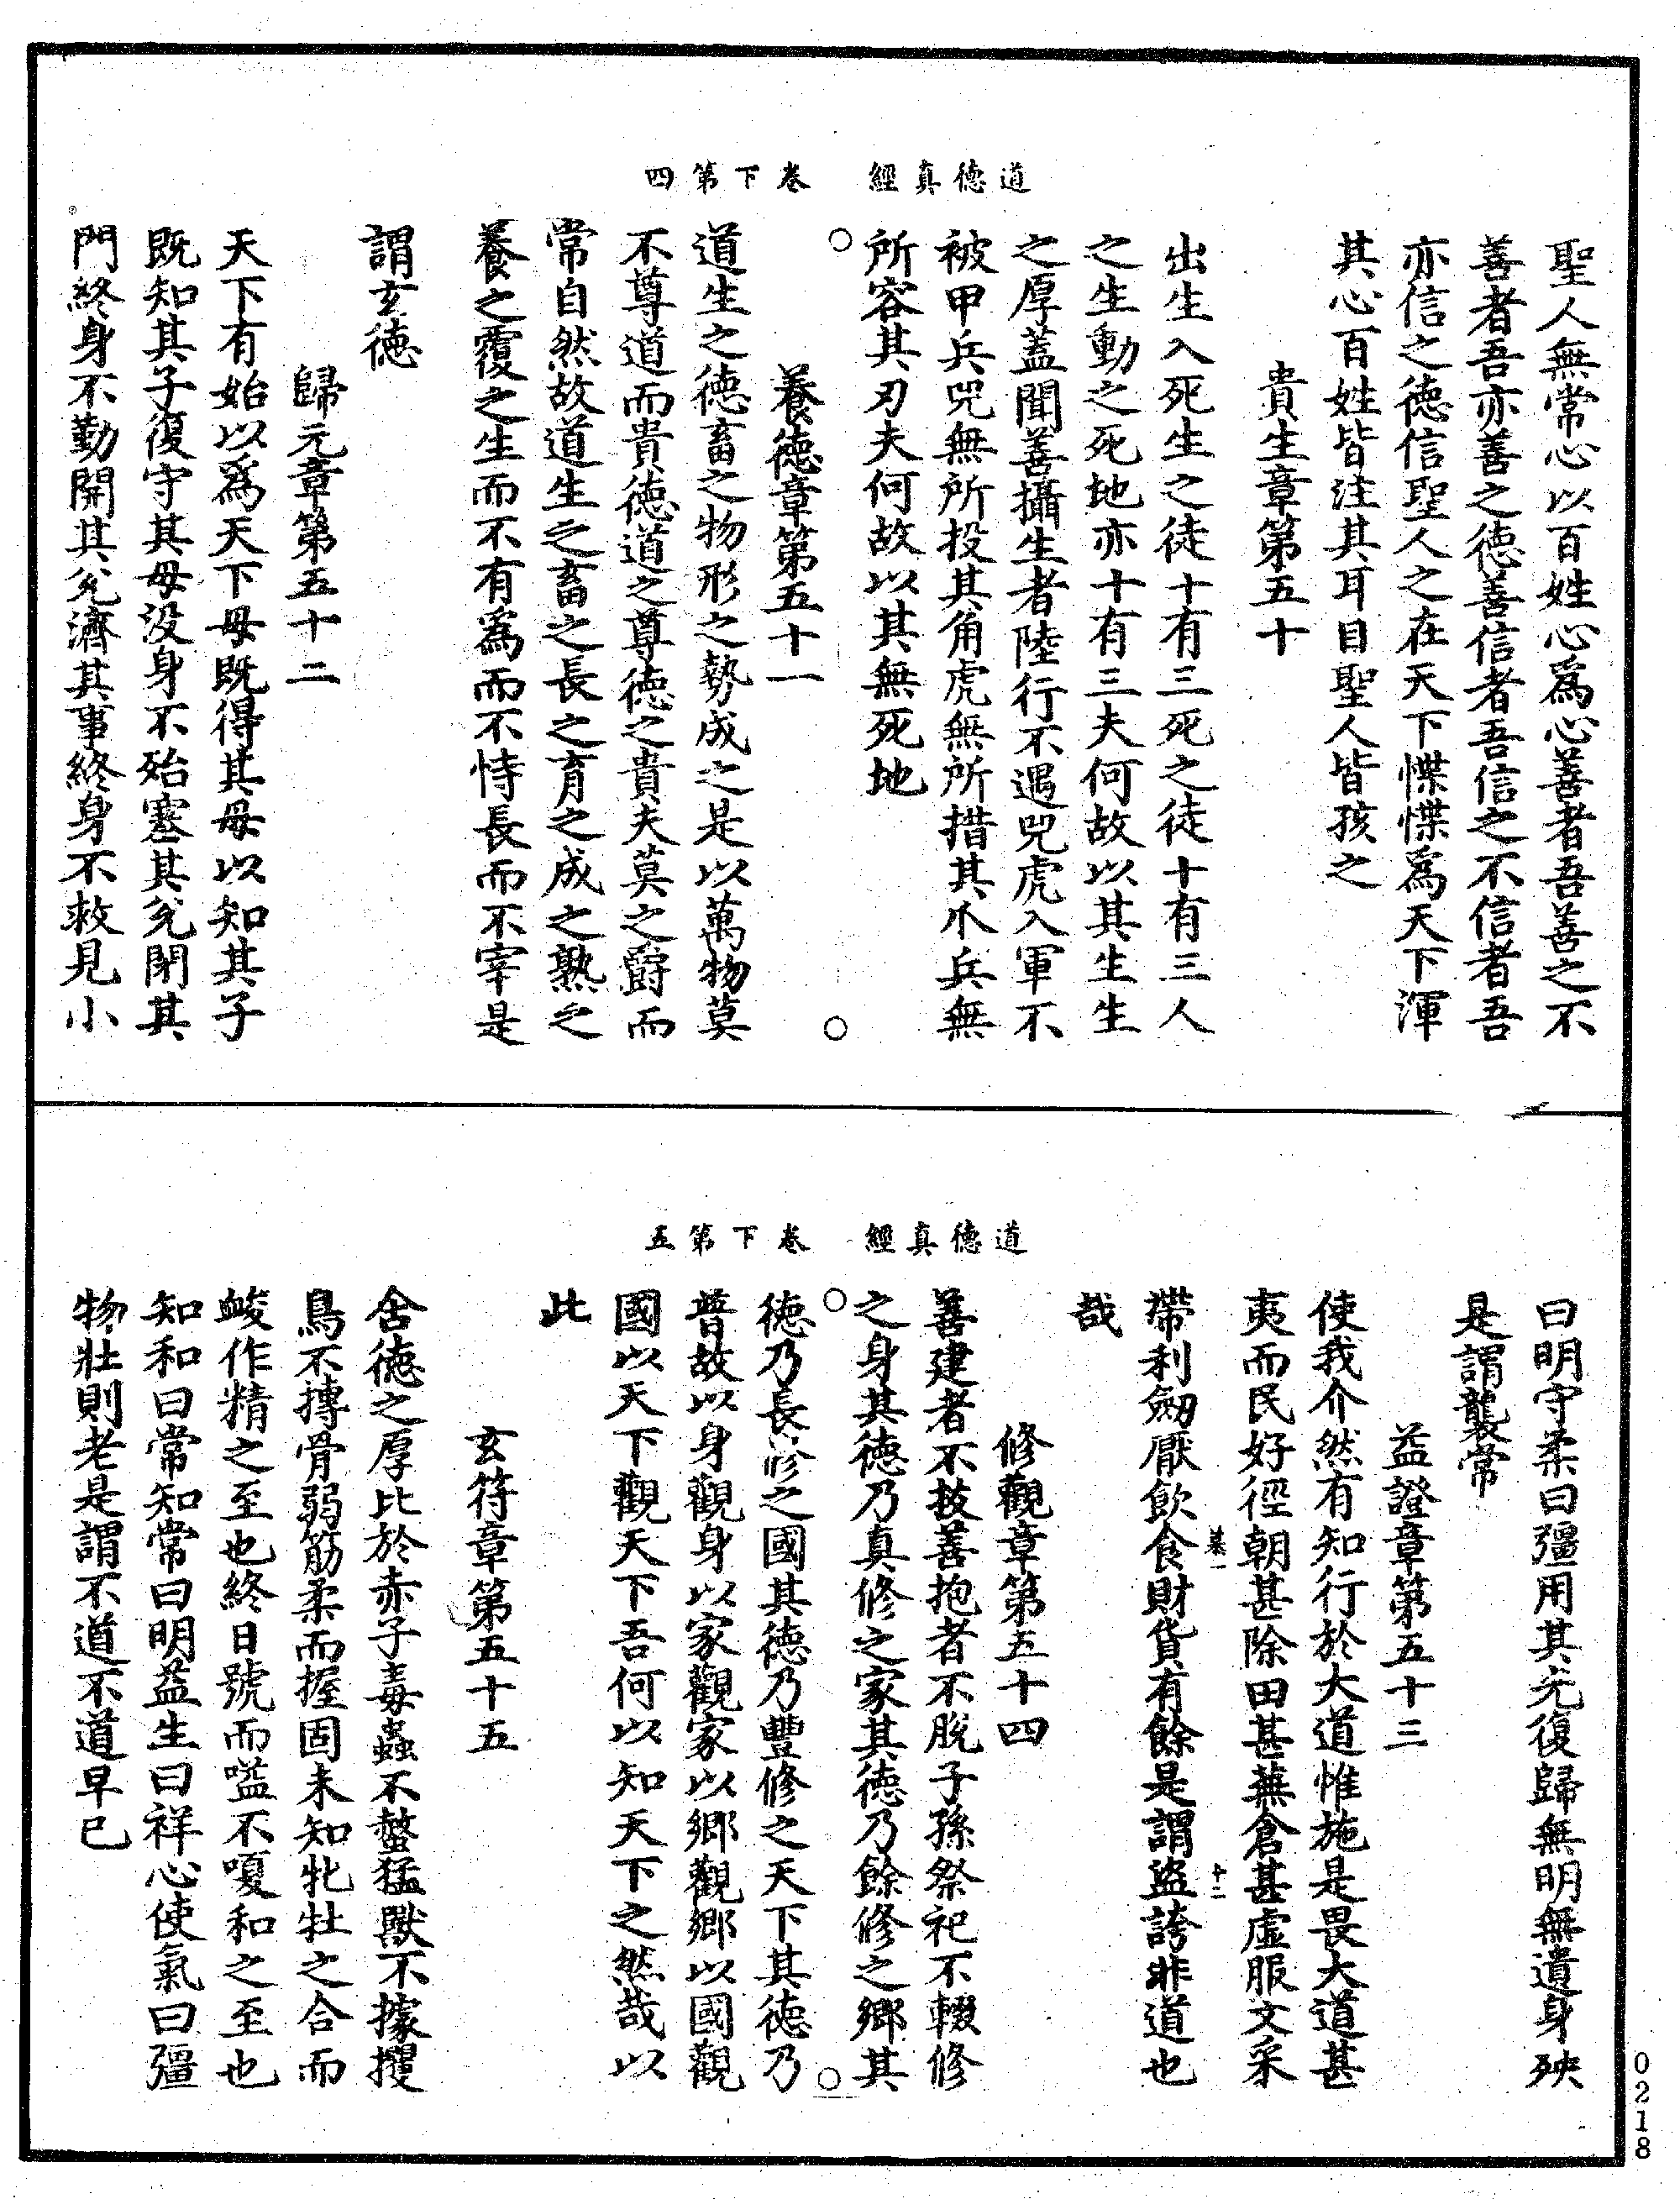 道德真經　卷下第四
聖人無常心以百姓心爲心善者吾善之不
善者吾亦善之德善信者吾信之不信者吾
亦信之德信聖人之在天下惵惵爲天下渾
其心百姓皆注其耳目聖人皆孩之
貴生章第五十
出生入死生之徒十有三死之徒十有三人
之生動之死地亦十有三夫何故以其生生
之厚蓋聞善攝生者陸行不遇兕虎入軍不
被甲兵兕無所投其角虎無所措其爪兵無
所容其刃夫何故以其無死地
養德章第五十一
道生之德畜之物形之勢成之是以萬物莫
不尊道而貴德道之尊德之貴夫莫之爵而
常自然故道生之畜之長之育之成之熟之
養之覆之生而不有爲而不恃長而不宰是
謂玄德
歸元章第五十二
天下有始以爲天下母既得其母以知其子
既知其子復守其母没身不殆塞其兌閉其
門終身不勤開其兌濟其事終身不救見小
道德真經　卷下第五
曰明守柔曰彊用其光復歸無明無遺身殃
是謂襲常
益證章第五十三
使我介然有知行於大道惟施是畏大道甚
夷而民好徑朝甚除田甚蕪倉甚虛服文采
帶利劒厭飲食財貨有餘是謂盜誇非道也
哉
修觀章第五十四
善建者不拔善抱者不脫子孫祭祀不輟修
之身其德乃真修之家其德乃餘修之鄉其
德乃長修之國其德乃豐修之天下其德乃
普故以身觀身以家觀家以鄉觀鄉以國觀
國以天下觀天下吾何以知天下之然哉以
此
玄符章第五十五
含德之厚比於赤子毒蟲不螫猛獸不據攫
鳥不搏骨弱筋柔而握固未知牝牡之合而
䘒作精之至也終日號而嗌不嗄和之至也
知和曰常知常曰明益生曰祥心使氣曰彊
物壯則老是謂不道不道早已
十二
0218